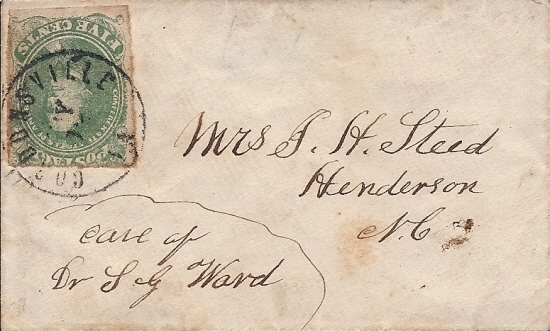 FIVE CENTS
GORDONSVILLE
Mrs J. H. Steed
Henderson
N.C
care of
Dr S G Ward